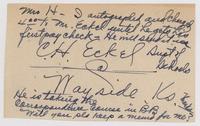 Mrs H - I autographed and charged
4.00 to Mr. Eckel until he gets his
first pay check - He will send it
C.H. Eckel Supt of
Schools
@
Wayside Ks.
He is taking the
Correspondence course in B.B.
Will you pls keep a memo for me.